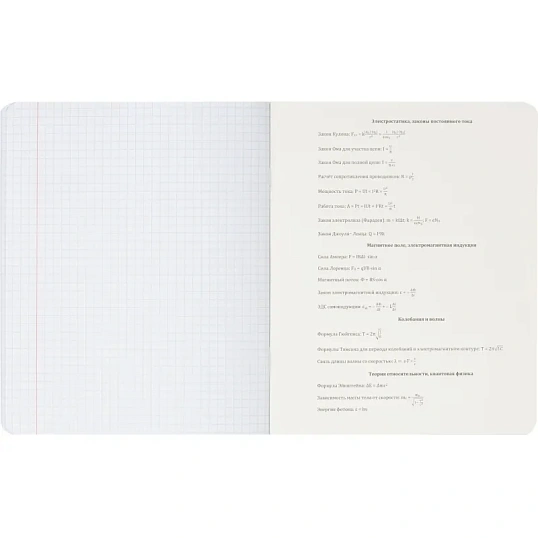 Электростатика, законы постоянного тока
Закон Кулона:
Закон Ома для участка цепи: I =
Закон Ома для полной цепи: I =
Расчёт сопротивления проводников: R = ρ
Мощность тока: P = UI = I²R =
Работа тока: A = Pt = IUt = I²Rt =
Закон электролиза (Фарадея): m = kIΔt; k =
Закон Джоуля - Ленца: Q = I²Rt
Магнитное поле, электромагнитная индукция
Сила Ампера: F = IBΔl · sin α
Сила Лоренца: Fл = qVB sin α
Магнитный поток: Φ = BS cos α
Закон электромагнитной индукции: ε = -
ЭДС самоиндукции:
Колебания и волны
Формула Гюйгенса: T = 2π
Формула Томсона для периода колебаний в электромагнитном контуре: T = 2π
Связь длины волны со скоростью: λ =
Теория относительности, квантовая физика
Формула Эйнштейна: ΔE = Δmc²
Зависимость массы тела от скорости:
Энергия фотона: ε = hν